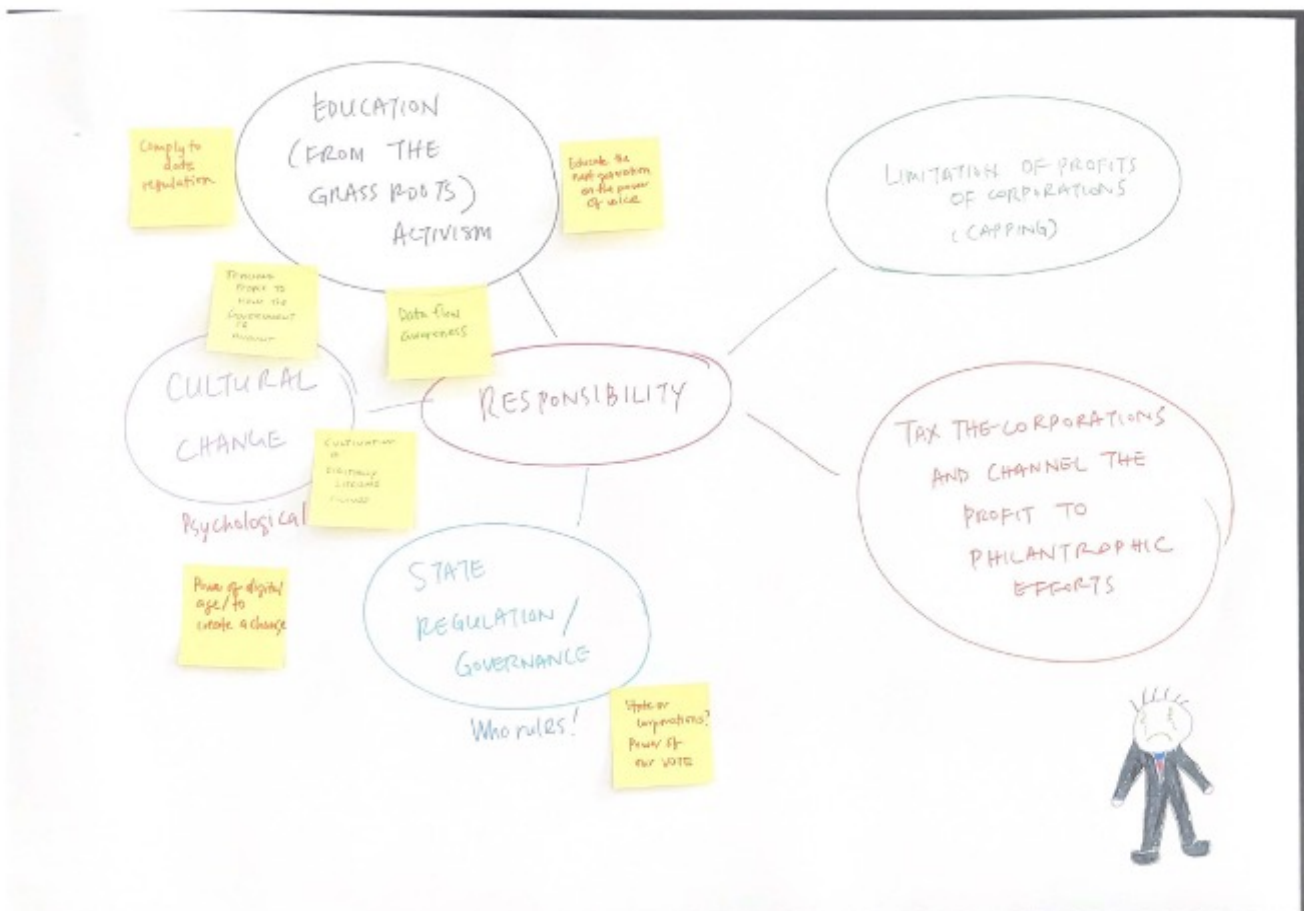 EDUCATION
(FROM THE
GRASS ROOTS)
ACTIVISM
Comply to
data
regulation
Educate the
next generation
on the power
of voice
LIMITATION OF PROFITS
OF CORPORATIONS
(CAPPING)
PEOPLE TO
GOVERNMENT
Data flow
awareness
CULTURAL
CHANGE
RESPONSIBILITY
TAX THE CORPORATIONS
AND CHANNEL THE
PROFIT TO
PHILANTROPHIC
EFFORTS
CULTIVATION
DIGITALLY
LITERATE
Psychological
Power of digital
age/to
create a change
STATE
REGULATION/
GOVERNANCE
Who rules!
State or
corporations?
Power of
our VOTE